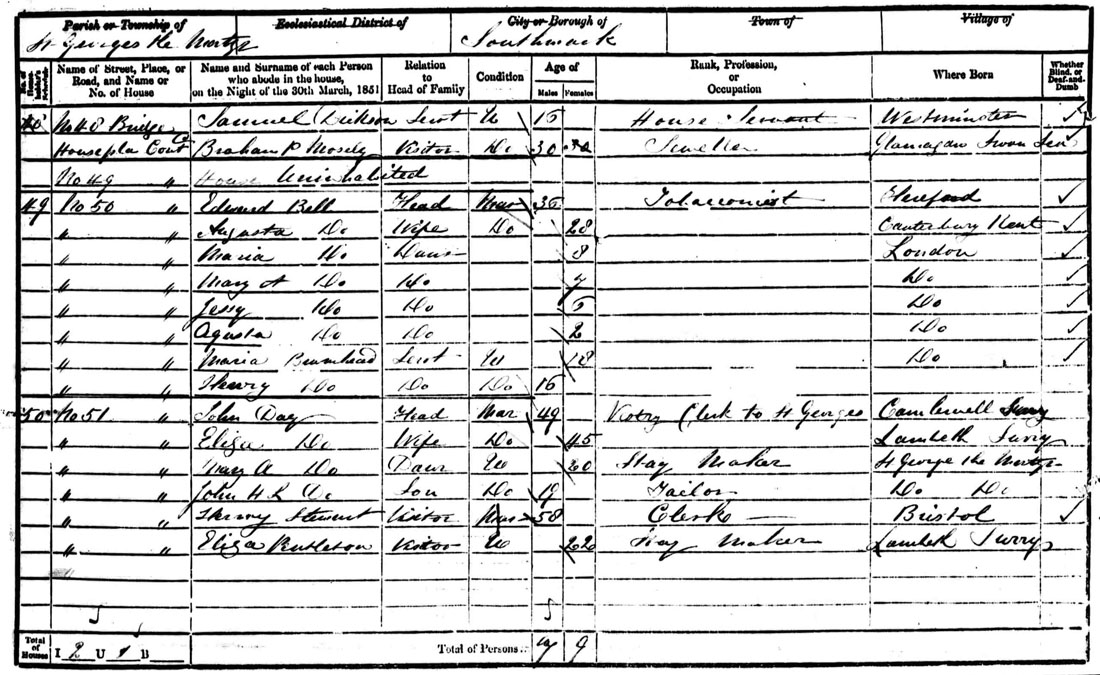 Parish or Township of Ecclesiastical District of City or Borough of Town of Village of
St Georges the Martyr Southwark
No. of House-holder's Schedule Name of Street, Place, or Road, and Name or No. of House Name and Surname of each Person who abode in the house, on the Night of the 30th March, 1851 Relation to Head of Family Condition Age of Males Females Rank, Profession, or Occupation Where Born Whether Blind, or Deaf-and-Dumb
48 No 48 Bridge Samuel Dickson Servt U 15 House Servant Westminster
House pla Court Braham P Mosely Visitor Do 30 Jeweller Glamagan Swan Sea
No 49 " House Uninhabited
49 No 50 " Edward Bell Head Mar 36 Tobacconist Hereford
" " Augusta Do Wife Do 28 Canterbury Kent
" " Maria Do Daur 8 London
" " Mary A Do Do 7 Do
" " Jessy Do Do 5 Do
" " Agusta Do Do 2 Do
" " Maria Servt U 18 Do
" " Henry Do Do Do 16
50 No 51 " John Day Head Mar 49 Vestry Clerk to St Georges Camberwell Surry
" " Eliza Do Wife Do 45 Lambeth Surry
" " Mary A Do Daur U 20 Stay Maker St George the Martyr
" " John H L Do Son Do 19 Tailor Do Do
" " Henry Stewart Visitor Mar 58 Clerk Bristol
" " Eliza Visitor U 22 Stay Maker Lambeth Surry
Total of Houses I 2 U 1 B Total of Persons 7 9